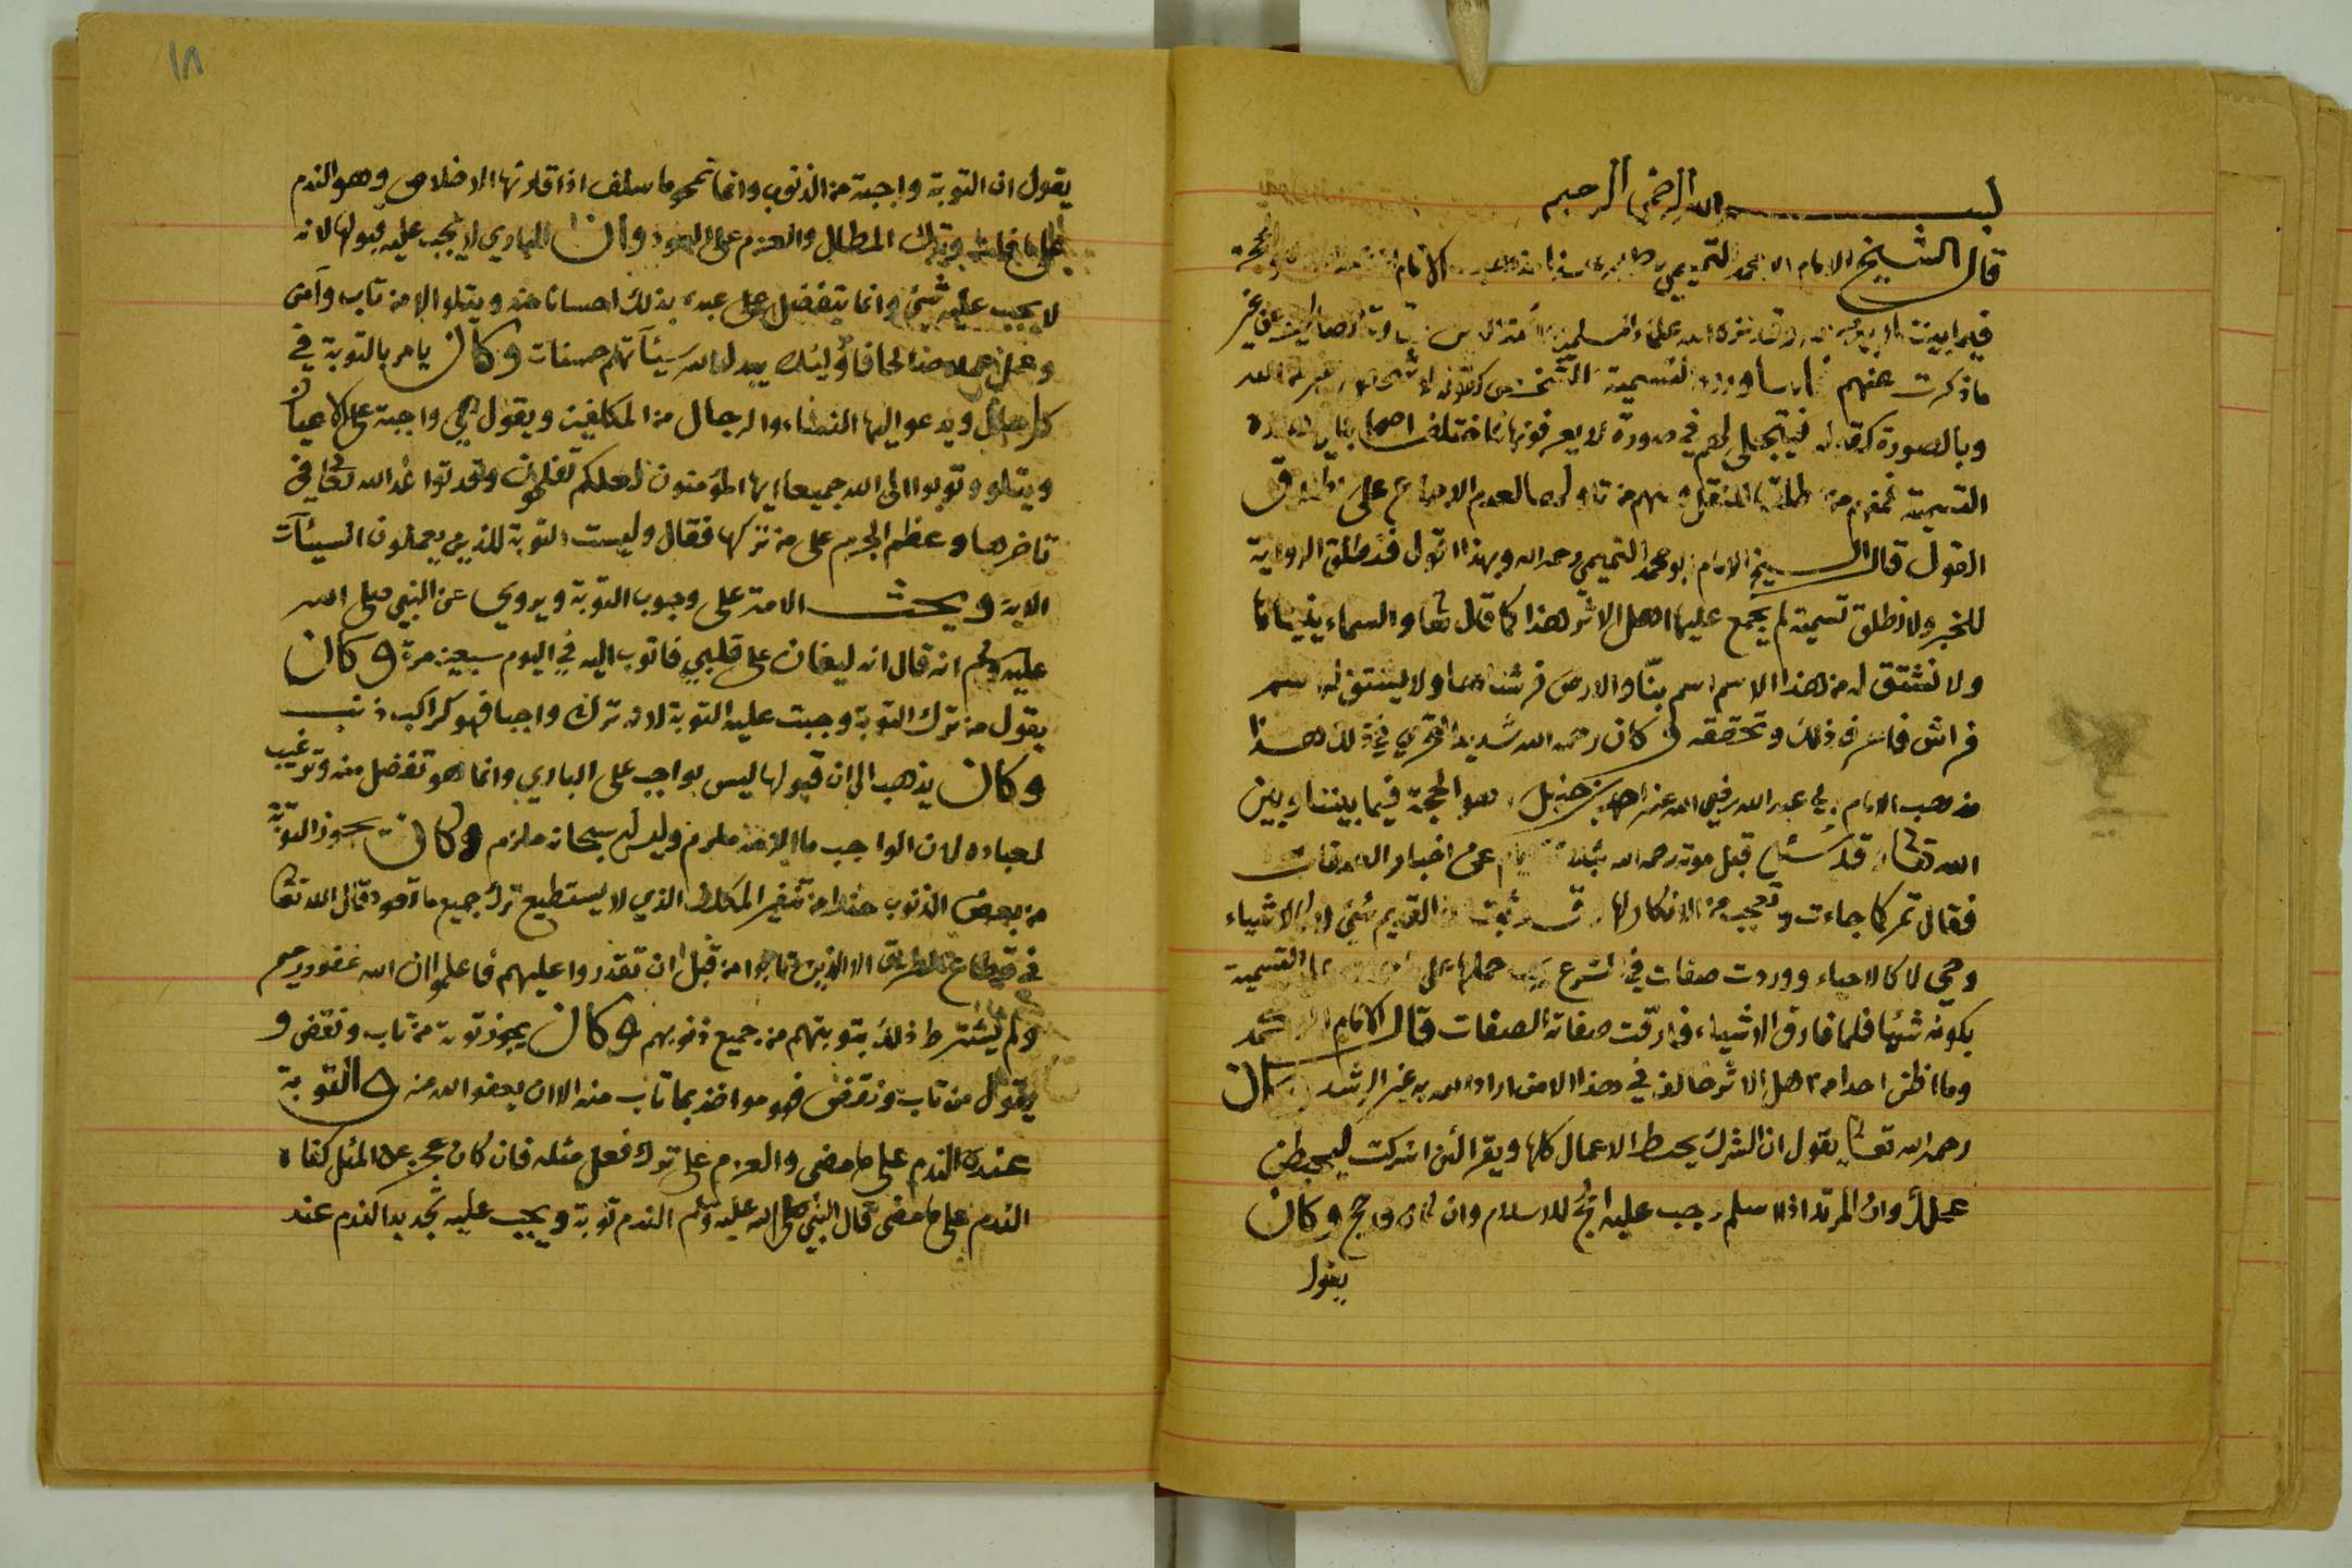 بسم الله الرحمن الرحيم
قال الشيخ الامام ابو محمد التميمي
ماذكرت عنهم ورود تسمية الشخص كقوله لا شخص اغير من الله
وبالصورة كقوله فيتجلى لهم في صورة لا يعرفونها فاختلف اصحابنا في هذه
التسمية فمنهم من اطلقها للنقل ومنهم من تاولها لعدم الاجماع على
القول قال الشيخ الامام ابو محمد التميمي رحمه الله وبهذا اقول فنطلق الرواية
للخبر ولا نطلق تسمية لم يجمع عليها اهل الاثر هذا كما قال تعا والسماء بنيناها
ولا نشتق له من هذا الاسم اسم بنّا والارض فرشناها ولا يشتق له اسم
فراش فاعرف ذلك وتحققه وكان رحمه الله شديد التحري في ذلك هذا
مذهب الامام ابي عبد الله رضي الله عنه احمد بن حنبل وهو الحجة فيما بيننا وبين
الله تعالى وقد سئل قبل موته رحمه الله بثلاثة ايام عن اخبار الصفات
فقال تمر كما جاءت وتعجب من الانكار لها ثبت ان القديم شئ لا كالاشياء
وحي لا كالاحياء ووردت صفات في الشرع حملها على التسمية
بكونه شيئا فلما فارق الاشياء فارقت صفاته الصفات قال الامام ابو محمد
وما اظن احدا من اهل الاثر خالف في هذا الا من اراد الله به غير الرشد وكان
رحمه الله تعالى يقول ان الشرك يحبط الاعمال كلها ويقرا لئن اشركت ليحبطن
عملك وان المرتد اذا اسلم وجب عليه الحج للاسلام وان كان قد حج وكان
يقول
١٨
يقول ان التوبة واجبة من الذنوب وانها تمحو ما سلف اذا قارنها الاخلاص وهو الندم
على ما فات وترك المطال والعزم على العود وان الباري لا يجب عليه قبولها لانه
لا يجب عليه شئ وانما يتفضل على عبده بذلك احسانا منه ويتلو الا من تاب وآمن
وعمل عملا صالحا فاؤليك يبدل الله سيئآتهم حسنات وكان يامر بالتوبة في
كل حال ويدعو اليها النساء والرجال من المكلفين ويقول هي واجبة على الاعيان
ويتلو وتوبوا الى الله جميعا ايها المؤمنون لعلكم تفلحون
تاخرها وعظم الجرم على من تركها فقال وليست التوبة للذين يعملون السيئآت
الاية ويحث الامة على وجوب التوبة ويروي عن النبي صلى الله
عليه وسلم انه قال انه ليغان على قلبي فاتوب اليه في اليوم سبعين مرة وكان
يقول من ترك التوبة وجبت عليه التوبة لانه ترك واجبا فهو كراكب ذنب
وكان يذهب الى ان قبولها ليس بواجب على الباري وانما هو تفضل منه وترغيب
لعباده لان الواجب ما الزمه ملزم وليس له سبحانه ملزم وكان يجوز التوبة
من بعض الذنوب الذي لا يستطيع ترك جميع ما تعود قال الله تعا
في قطاع الطريق الا الذين تابوا من قبل ان تقدروا عليهم فاعلموا ان الله غفور رحيم
ولم يشترط ذلك بتوبتهم من جميع ذنوبهم وكان يجوز توبة من تاب ونقض و
يقول من تاب ونقض فهو مواخذ بما تاب منه الا ان يعفو الله عنه والتوبة
عنده الندم على ما مضى والعزم على ترك فعل مثله فان كان عجز عن المثل كفاه
الندم على ما مضى قال النبي صلى الله عليه وسلم الندم توبة ويجب عليه تجديد الندم عند